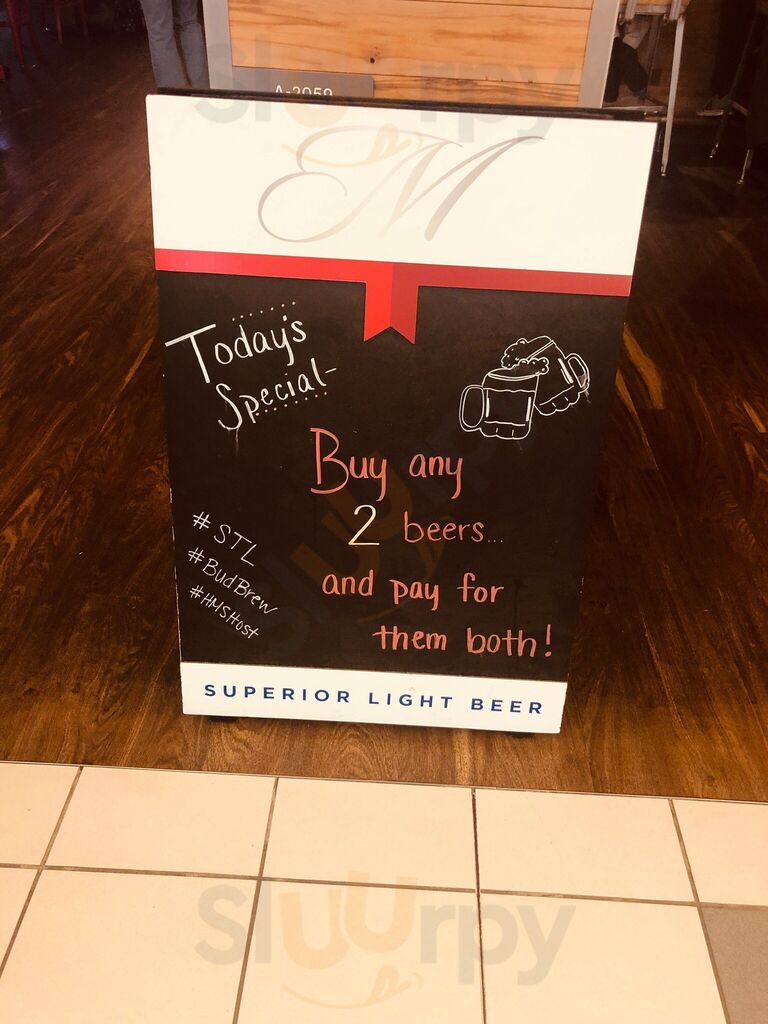 A-2059
M
Today's
Special-
Buy any
2 beers...
and pay for
them both!
#STL
#BudBrew
#HMSHost
SUPERIOR LIGHT BEER
Sluurpy
Sluurpy
Sluurpy